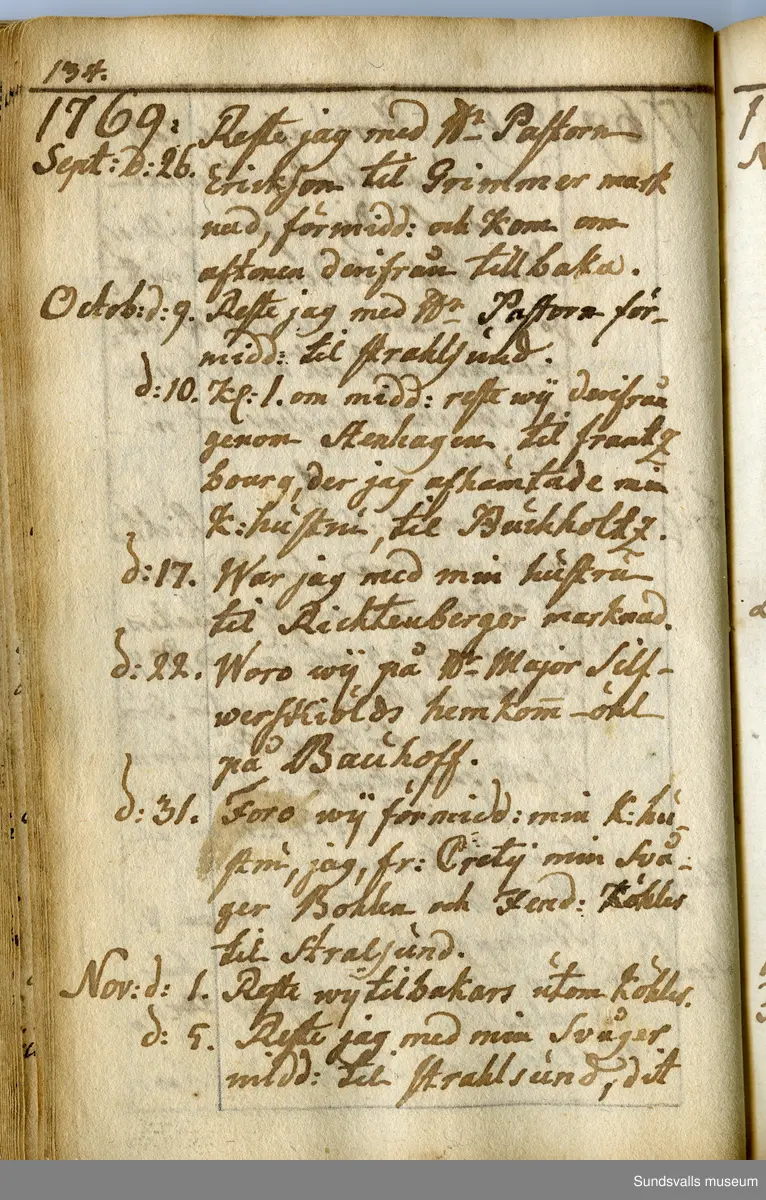 134.
1769: Reste jag med Hr Pastorn
Sept: D: 26. Erickson til Grimmer mark
nad, förmidd: och kom om
aftonen derifrån tillbaka.
Octob: d: 9. Reste jag med Hr Pastorn för-
midd: til Strahlsund.
d: 10. Kl: 1. om midd: reste wÿ derifrån
genom Stenhagen til frantz
bourg, der jag afhämtade min
K: hustru, til Buckholtz.
d: 17. War jag med min hustru
til Richtenberger marknad.
d: 22. Woro wÿ på Hr Major Silf-
werskiölds hemkom̅-öhl
på Bauhoff.
d: 31. Foro wÿ förmidd: min K: hu-
stru, jag, fr: Pretij min Svå-
ger Bohlen och Fend: Köhler
til Stralsund.
Nov: d: 1. Reste wÿ tilbakars utom Köhler.
d: 5. Reste jag med min Svåger
midd: til Strahlsund, dit
Sundsvalls museum